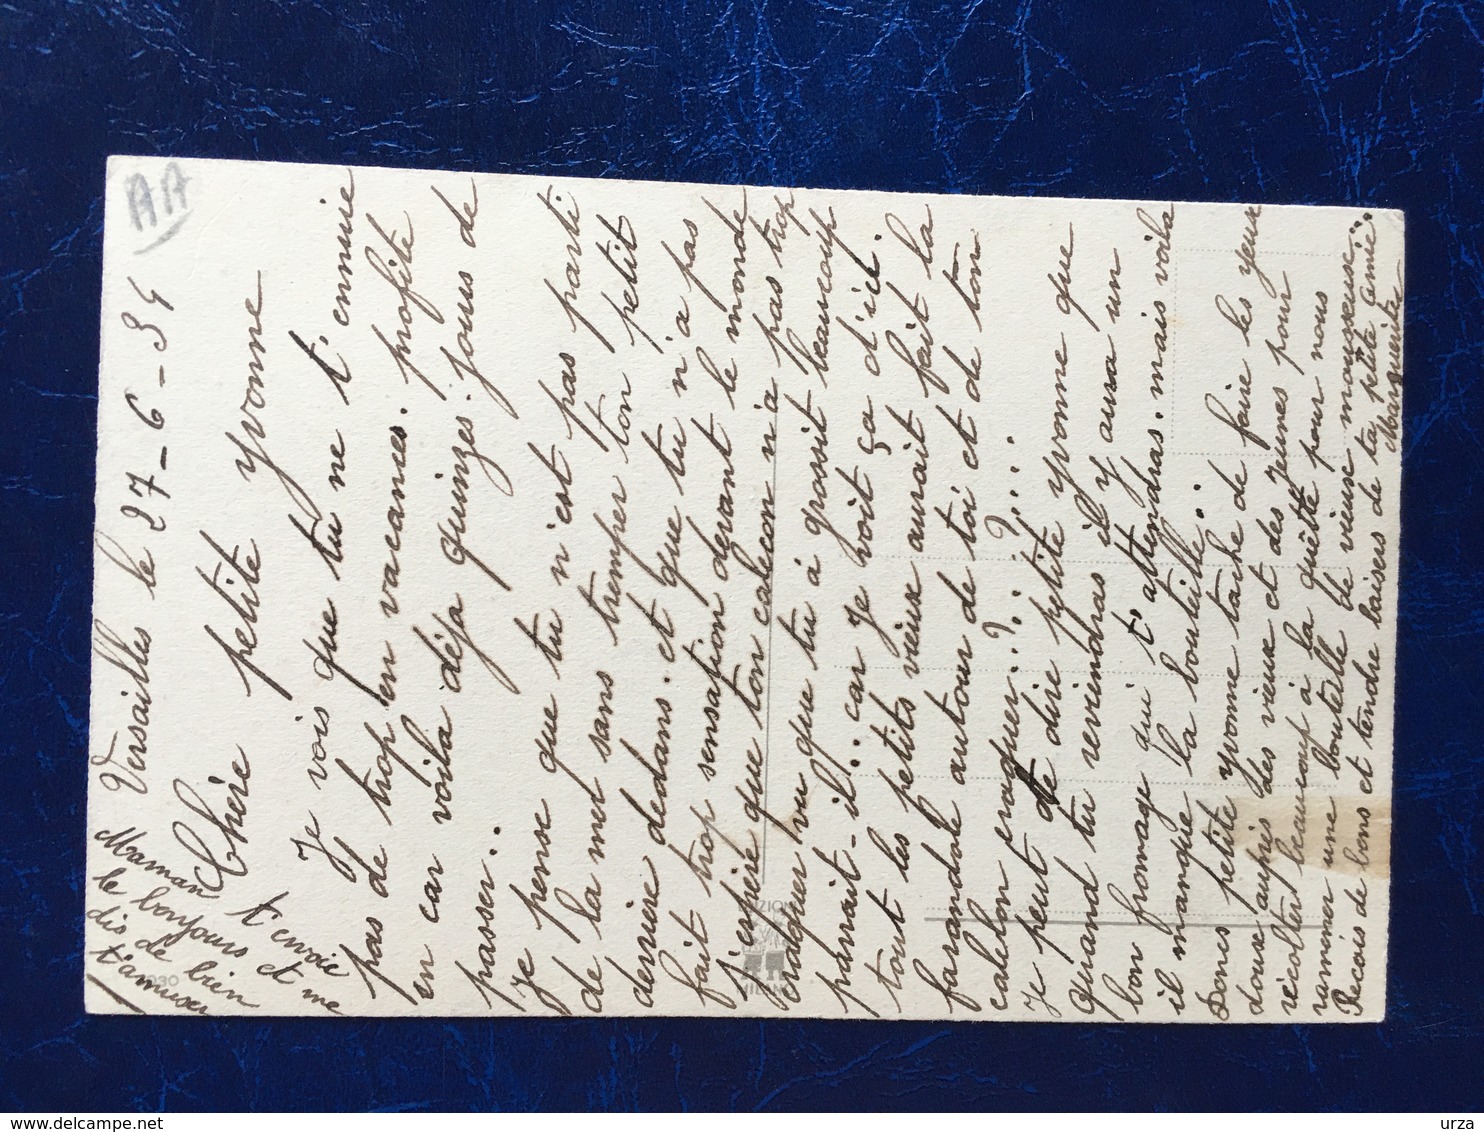 AA
Versailles le 27-6-34
Chère petite Yvonne
Je vois que tu ne t'ennuie
pas de trop en vacances. profite
en car voila déja quinzes jours de
passer.
Je pense que tu n'est pas parti
de la mot sans tremper ton petit
derriere dedans. et que tu n'a pas
fait trop sensation devant le monde
j'espère que ton calecon n'a pas trop
craquer vu que tu à grossit beaucoup
parrait-il.. car je voit ça d'ici.
tout les petits vieux aurait fait la
farandole autour de toi et de ton
caleton craquer...?...?...
Je peut te dire petite yvonne que
quand tu reviendras il y aura un
bon fromage qui t'attendras. mais voila
il manque la bouteille.
Donc petite yvonne tache de faire les yeux
doux aupris des vieux et des jeunes pour
récolter beaucoup à la quêtte pour nous
ramener une bouteille de vieux mousseuse...
Recois de bons et tendre baisers de ta ptite amie
Marguerite
Maman t'envoie
le bonjours et me
dis de bien
t'amuser
030
MILANO